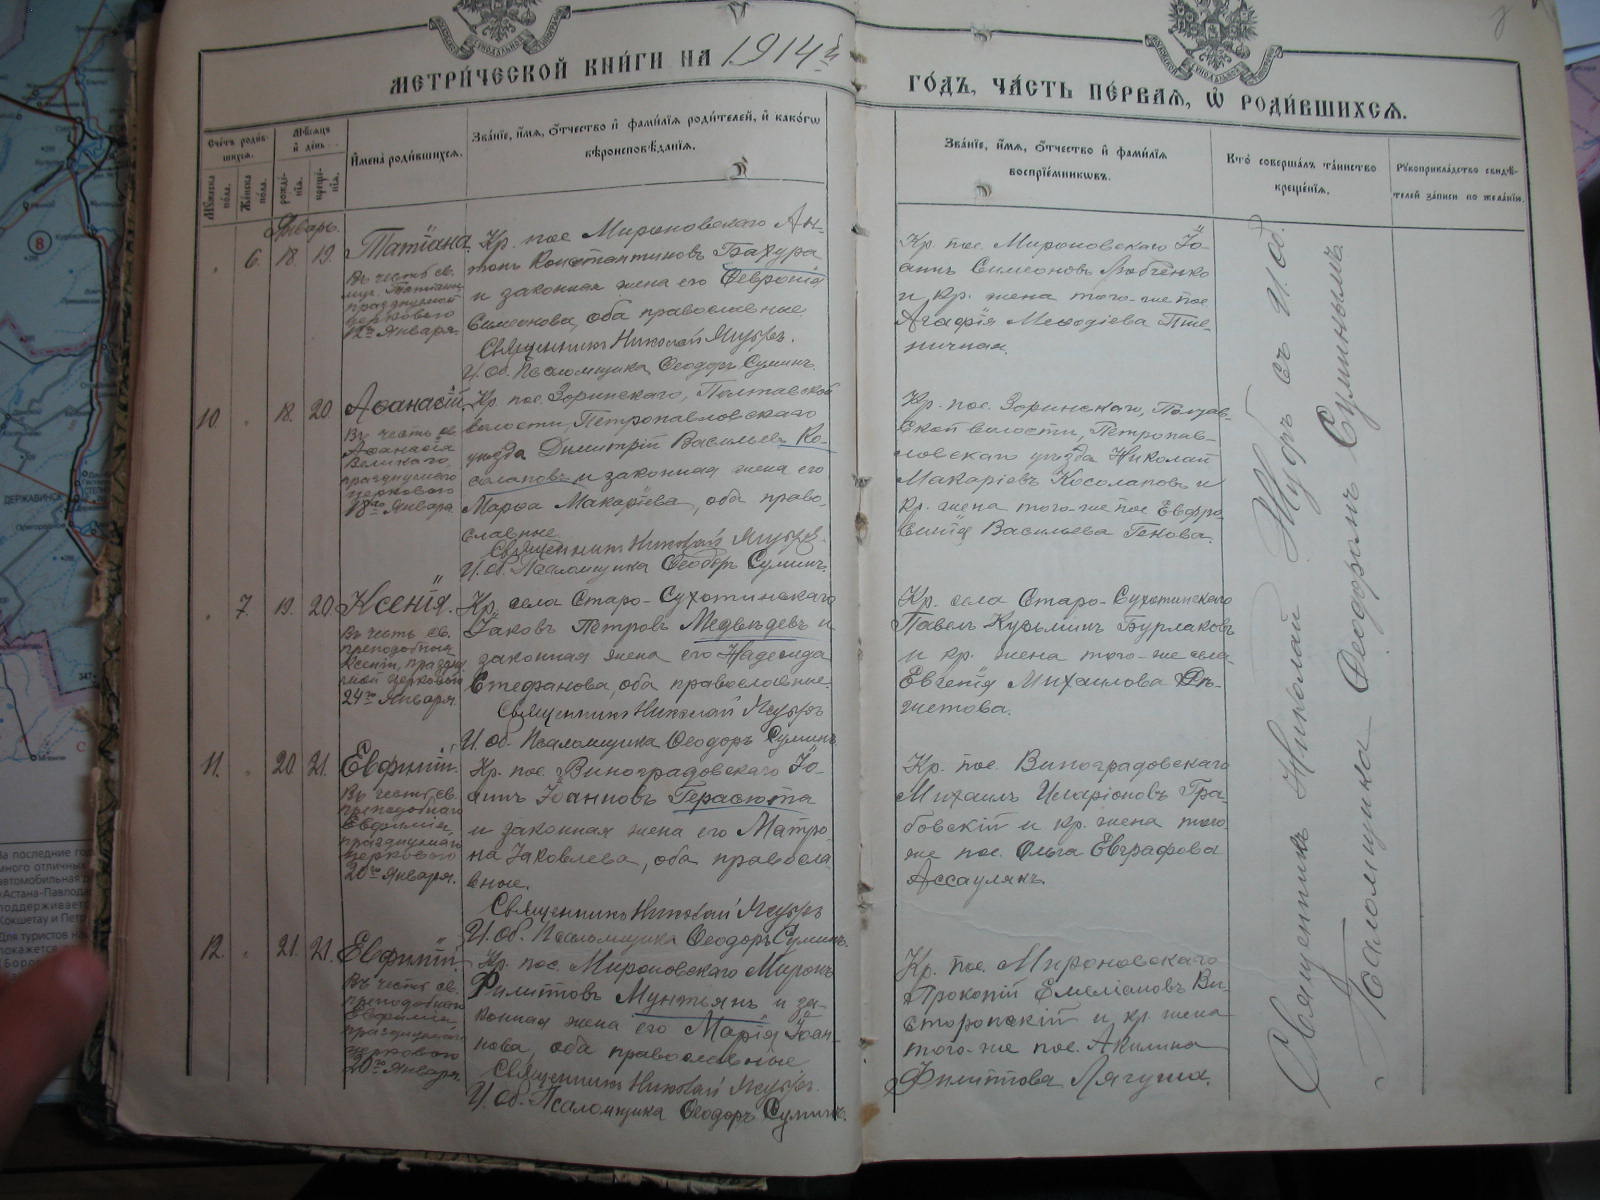 МЕТРИ́ЧЕСКОЙ КНИ́ГИ НА 1914й
ГО́ДЪ, ЧА́СТЬ ПЕ́РВАѦ, Ѡ҆ РОДИ́ВШИХСѦ.
Сче́тъ роди́в-
шихсѧ.
Мꙋ́жеска по́ла.
Же́нска по́ла.
Мѣ́сѧцъ
и҆ де́нь.
рожде́-
нїѧ.
креще́-
нїѧ.
И҆мена̀ роди́вшихсѧ.
Зва́нїе, и҆́мѧ, ѻ҆́тчество и҆ фами́лїѧ роди́телей, и҆ како́гѡ
вѣроисповѣ́данїѧ.
Зва́нїе, и҆́мѧ, ѻ҆́тчество и҆ фами́лїѧ
воспрїе́мникѡвъ.
Кто̀ соверша́лъ та́инство
креще́нїѧ.
Рꙋкоприкла́дство свидѣ́-
телей за́писи по жела́нїю.
Январь.
6. 18. 19.
Татіана.
Въ честь св.
муч. Татіаны
празднуемой
церковью
12го Января.
Кр. пос. Мироновскаго Ан-
тонъ Константиновъ Бахура
и законная жена его Февронія
Симеонова, оба православные.
Священникъ Николай
И. об. Псаломщика Ѳеодоръ Суминъ.
Кр. пос. Мироновскаго Іо-
аннъ Симеоновъ
и кр. жена того-же пос.
Агафія Меѳодіева Пше-
ничная.
10. 18. 20.
Аѳанасій.
Въ честь св.
Аѳанасія
Великаго,
празднуемаго
церковью
18го Января
Кр. пос. Зоринскаго, Полтавской
волости, Петропавловскаго
уѣзда Димитрій Васильевъ Ко-
солаповъ и законная жена его
Марѳа Макаріева, оба право-
славные.
Священникъ Николай
И. об. Псаломщика Ѳеодоръ Суминъ.
Кр. пос. Зоринскаго, Полтав-
ской волости, Петропав-
ловскаго уѣзда Николай
Макаріевъ Косолаповъ и
кр. жена того-же пос. Евфро-
синія Васильева
7. 19. 20
Ксенія.
Въ честь св.
преподобныя
Ксеніи, праздну-
емой церковью
24го Января.
Кр. села Старо-Сухотинскаго
Іаковъ Петровъ Медвѣдевъ и
законная жена его Надежда
Стефанова, оба православные.
Священникъ Николай
И. об. Псаломщика Ѳеодоръ Суминъ
Кр. села Старо-Сухотинскаго
Павелъ Кузьминъ Бурлаковъ
и кр. жена того-же села
Евгенія Михаилова
11. 20. 21.
Евфимій.
Въ честь св.
преподобнаго
Евфимія,
празднуемаго
церковью
20го Января.
Кр. пос. Виноградовскаго Іо-
аннъ Іоанновъ Герасюта
и законная жена его Матро-
на Іаковлева, оба правосла-
вные.
Священникъ Николай
И. об. Псаломщика Ѳеодоръ Суминъ.
Кр. пос. Виноградовскаго
Михаилъ Иларіоновъ Гра-
бовскій и кр. жена того-
же пос. Ольга Евграфова
Ассауляк.
12. 21. 21.
Евфимій.
Въ честь св.
преподобнаго
Евфимія
празднуемаго
церковью
20го Января.
Кр. пос. Мироновскаго Миронъ
Филипповъ Мунтьянъ и за-
конная жена его Марія Іоан-
нова, оба православные
Священникъ Николай
И. об. Псаломщика Ѳеодоръ Суминъ.
Кр. пос. Мироновскаго
Прокопій Емеліановъ Ви-
сторопскій и кр. жена
того-же пос. Акилина
Филиппова Лягуша.
Священникъ Николай
Псаломщика Ѳеодоромъ Суминымъ
8
ДЕРЖАВИНСК
За последние го
много отличных
автомобильная
«Астана-Павлода
поддерживает
Кокшетау и Петр
Для туристов на
покажется
(Боро